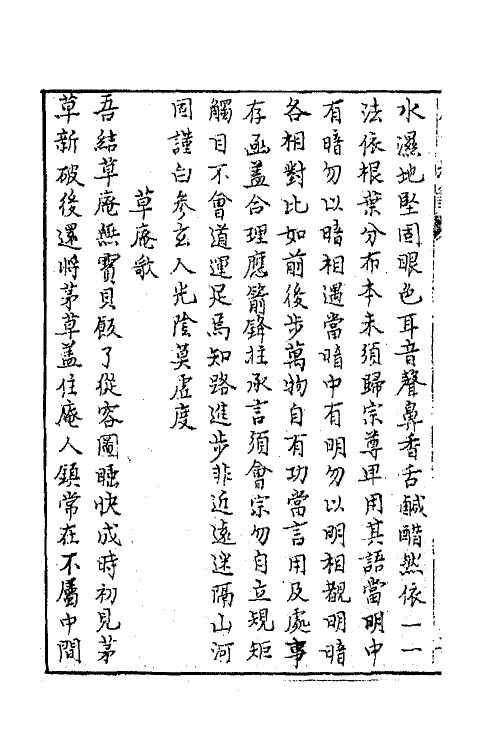 水濕地堅固眼色耳音聲鼻香舌鹹醋然依一一
法依根葉分布本末須歸宗尊卑用其語當明中
有暗勿以暗相遇當暗中有明勿以明相覩明暗
各相對比如前後步萬物自有功當言用及處事
存函蓋合理應箭鋒拄承言須會宗勿自立規矩
觸目不會道運足焉知路進步非近遠迷隔山河
固謹白參玄人光陰莫虛度
草庵歌
吾結草庵無寶貝飯了從容圖睡快成時初見茅
草新破後還將茅草蓋住庵人鎮常在不屬中間